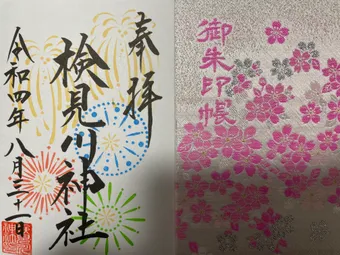 奉拝
検見川神社
令和四年八月三十一日
御朱印帳